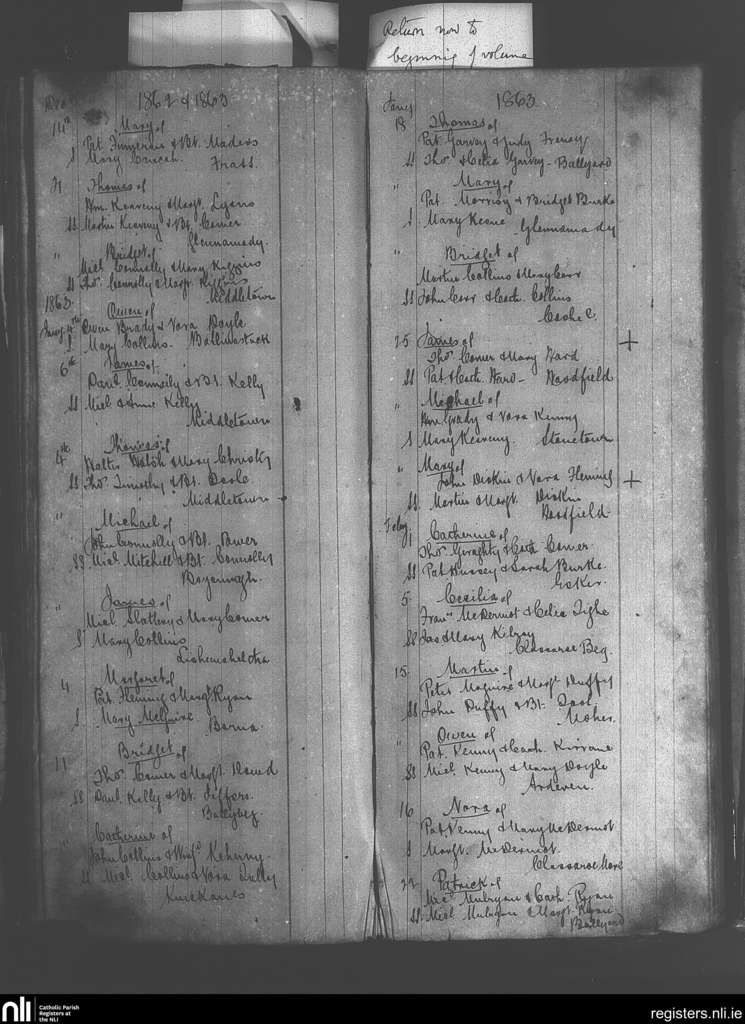 Return now to
beginning of volume
Dec
1862 & 1863
14th Mary of
Pat Finneran & Bt. Maders
S Mary
Frass.
21 Thomas of
Wm. Keaveny & Margt. Lyons
SS Martin Keaveny & Bt. Comer
Glennamady.
" Bridget of
Micl. Connolly & Mary Higgins
SS Thos. Connolly & Margt. Higgins
Middletown
1863
Jany 4th Owen of
Owen Brady & Nora Doyle
S Mary Collins. Ballinastack
6th James of
Danl. Connolly & Bt. Kelly
SS Micl & Anne Kelly
Middletown
4th Thomas of
Walter Walsh & Mary Christy
SS Thos. Timothy & Bt.
Middletown
" Michael of
John Connolly & Bt. Power
SS Micl. Mitchell & Bt. Connolly
" James of
Micl Slattery & Mary Comer
S Mary Collins
4 Margaret of
Pat. Fleming & Margt Ryan
S Mary McGuire
Barna.
11 Bridget of
Thos. Comer & Margt. Dowd
SS Danl. Kelly & Bt. Jiffers.
Ballybeg.
" Catherine of
John Collins & Winfd. Keherny.
SS Micl. Collins & Nora Lully
Knockanes
Jany
1863
18 Thomas of
Pat Garvey & Judy Freney
SS Thos & Celia Garvey - Ballyard
" Mary of
Pat. Morrisy & Bridget Burke
S Mary Keane Glennamady
" Bridget of
Martin Collins & Mary Carr
SS John Carr & Cath. Collins
Cashel.
25 James of
Thos Comer & Mary Ward
SS Pat & Cath. Ward - Woodfield
" Michael of
Wm. Grady & Nora Kenny
S Mary Keaveny. Stonetown
" Mary of
John Diskin & Nora Fleming
SS. Martin & Margt. Diskin
Woodfield.
Feby 1 Catherine of
Thos Geraghty & Cath Comer.
SS Pat Hussey & Sarah Burke.
Esker.
5 Cecilia of
Frans McDermot & Celia Tighe
SS Jas & Mary Kelray
Classarae Beg.
15 Martin of
Peter Maguire & Margt Duffy
SS John Duffy & Bt.
Moher.
" Owen of
Pat. Kenny & Cath. Kirrane
SS Micl. Kenny & Mary Doyle
Ardeven.
16 Nora of
Pat. Kenny & Mary McDermot
S Margt. McDermot.
Classaroe More
22 Patrick of
Micl Mulryan & Cath. Ryan
SS. Micl Mulryan & Margt. Ryan
Ballyard
nli
Catholic Parish
Registers at
the NLI
registers.nli.ie